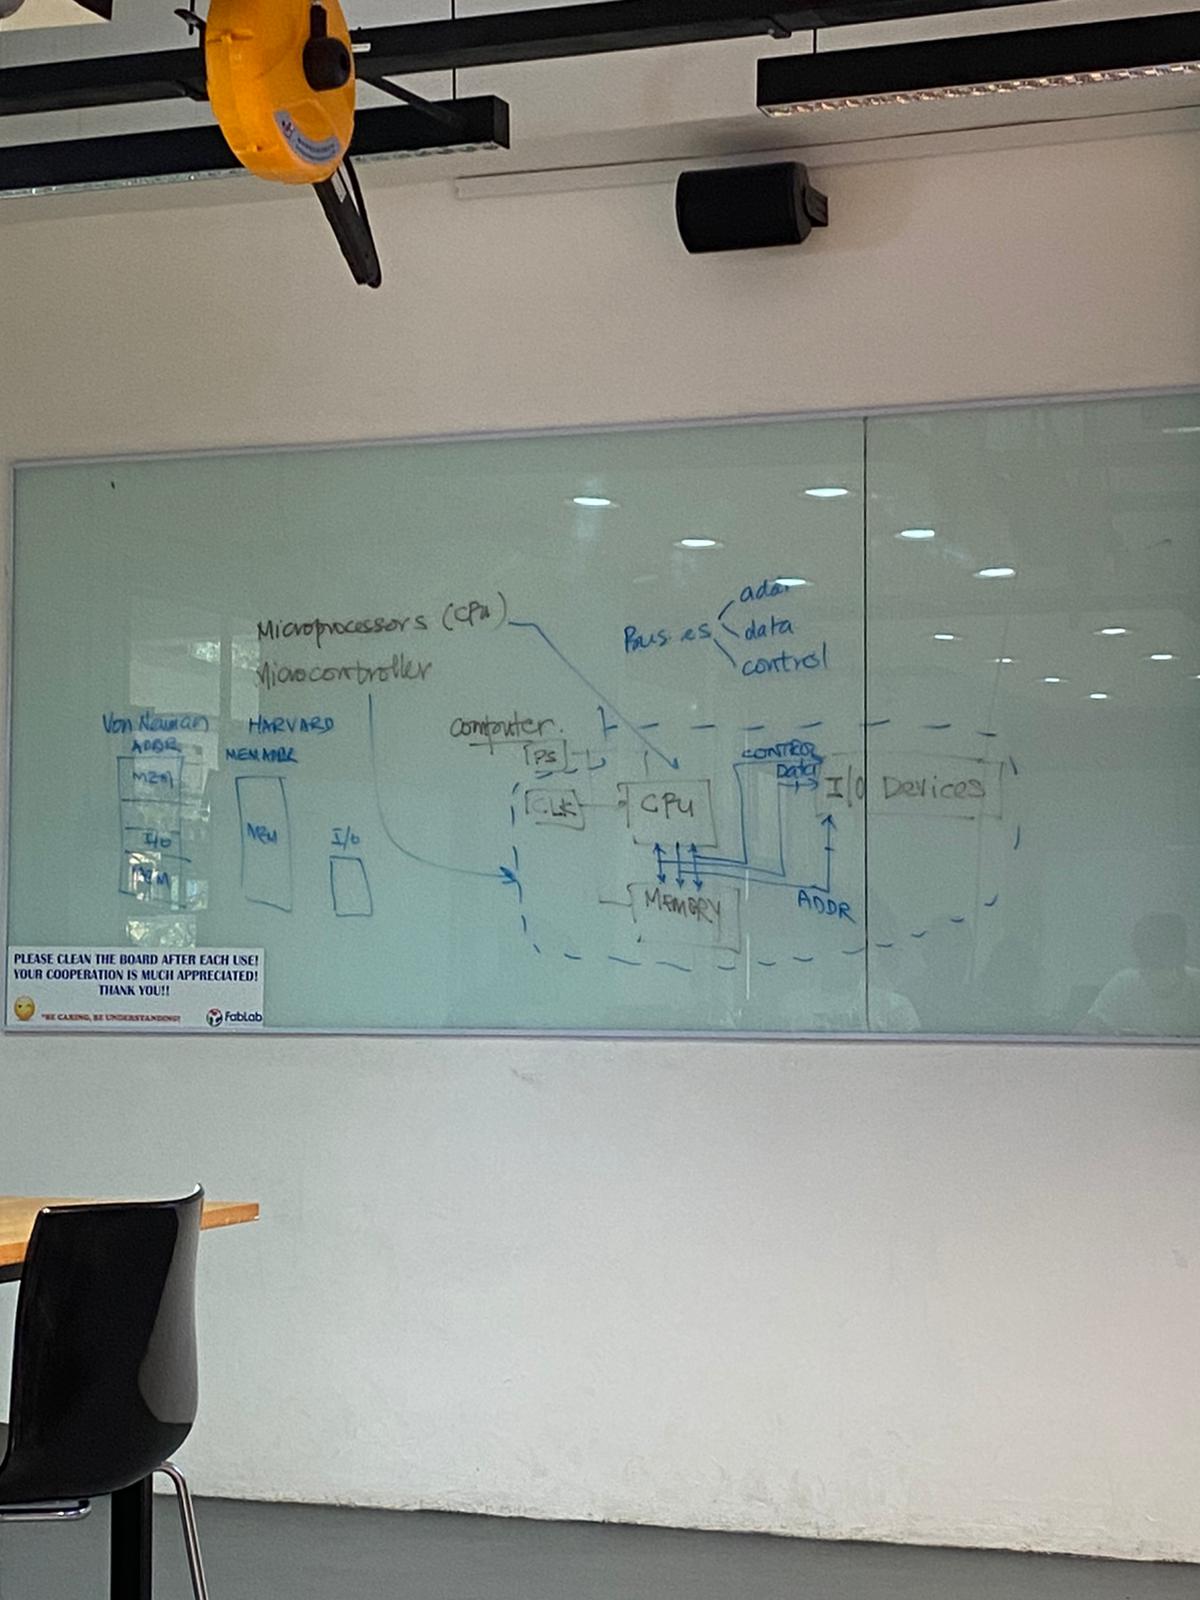 Microprocessors (CPU)
Microcontroller
Buses
addr
data
control
Von Neuman
ADDR
MEM
I/O
MEM
HARVARD
MEM ADDR
MEM
I/O
Computer.
PS
CLK
CPU
MEMORY
CONTROL
Data
I/O Devices
ADDR
PLEASE CLEAN THE BOARD AFTER EACH USE!
YOUR COOPERATION IS MUCH APPRECIATED!
THANK YOU!!
"BE CARING, BE UNDERSTANDING!"
FabLab